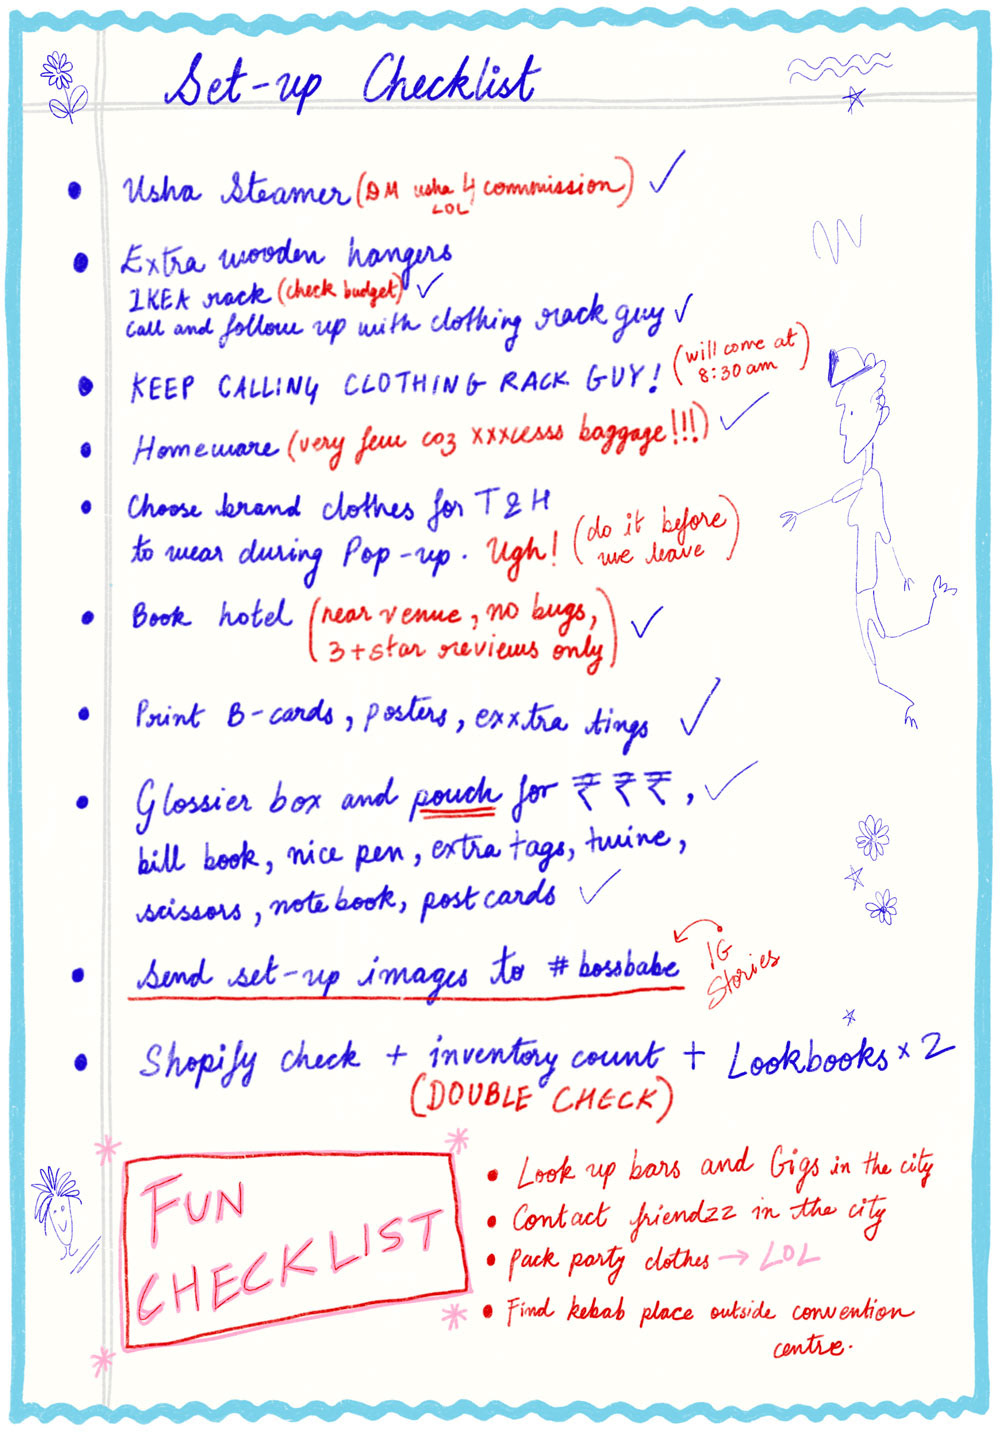 Set-up Checklist
• Usha Steamer (DM usha 4 commission) ✓
LOL
• Extra wooden hangers
IKEA rack (check budget) ✓
call and follow up with clothing rack guy ✓
• KEEP CALLING CLOTHING RACK GUY! (will come at
8:30 am)
• Homeware (very few coz xxxcesss baggage!!!) ✓
• Choose brand clothes for T & H
to wear during Pop-up. Ugh! (do it before
we leave)
• Book hotel (near venue, no bugs,
3+star reviews only) ✓
• Print B-cards, posters, exxtra tings ✓
• Glossier box and pouch for ₹ ₹ ₹, ✓
bill book, nice pen, extra tags, twine,
scissors, note book, post cards ✓
• Send set-up images to #bossbabe
IG
Stories
• Shopify check + inventory count + Lookbooks x 2
(DOUBLE CHECK)
FUN
CHECKLIST
• Look up bars and Gigs in the city
• Contact friendzz in the city
• Pack party clothes → LOL
• Find kebab place outside convention
centre.